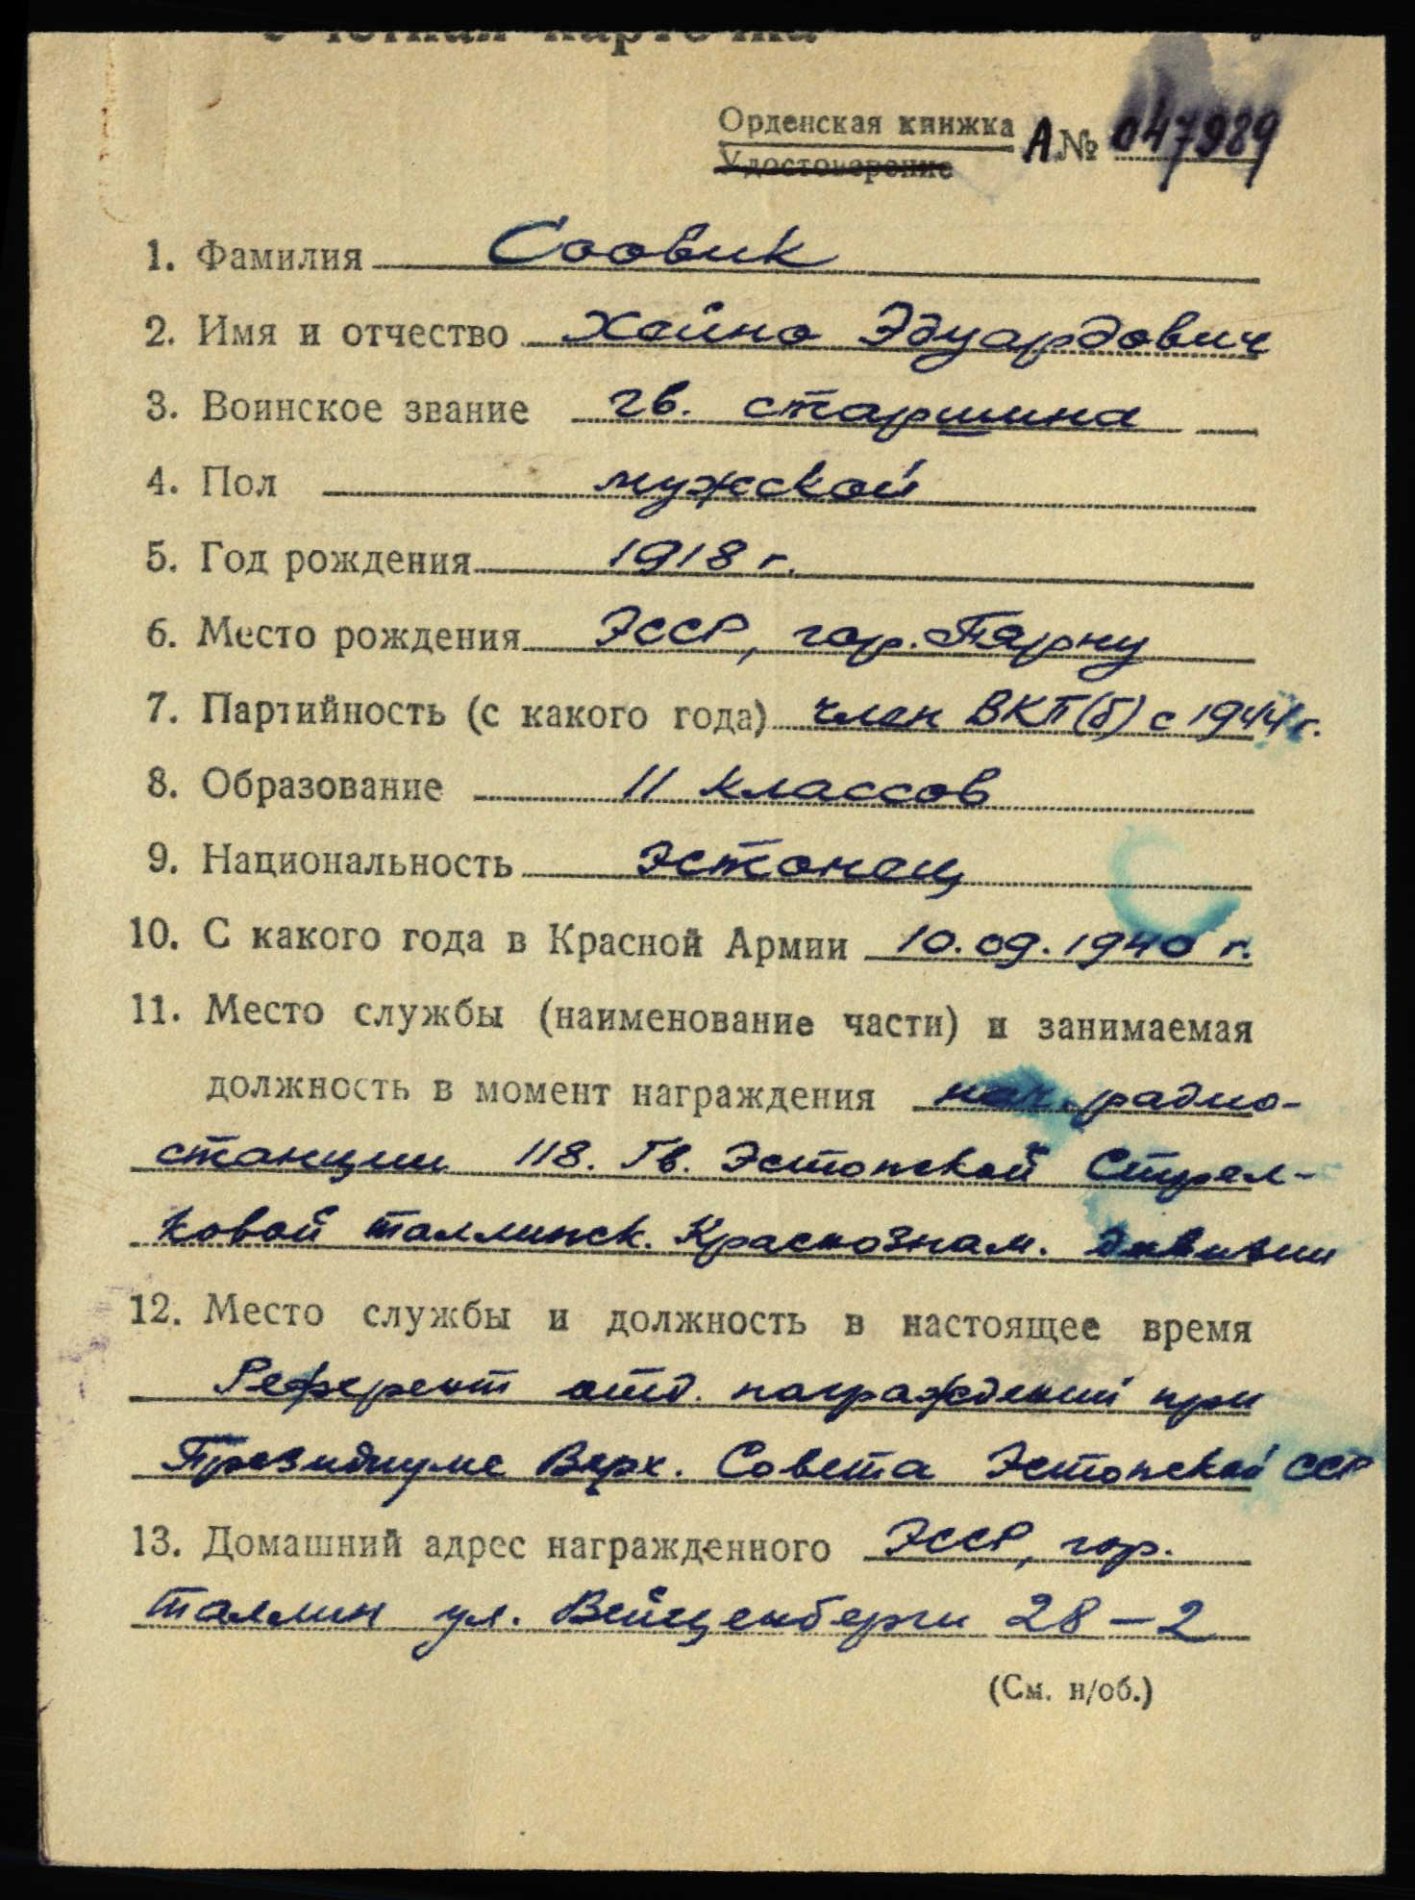 Учетная карточка
Орденская книжка
Удостоверение А № 047989
1. Фамилия Соовик
2. Имя и отчество Хейно Эдуардович
3. Воинское звание гв. старшина
4. Пол мужской
5. Год рождения 1918 г.
6. Место рождения ЭССР, гор. Пярну
7. Партийность (с какого года) член ВКП(б) с 1944 г.
8. Образование 11 классов
9. Национальность Эстонец
10. С какого года в Красной Армии 10.09.1940 г.
11. Место службы (наименование части) и занимаемая
должность в момент награждения нач. радио-
станции 118. Гв. Эстонской Стрел-
ковой Таллинск. Краснознам. дивизии
12. Место службы и должность в настоящее время
Референт отд. награждений при
Президиуме Верх. Совета Эстонской ССР
13. Домашний адрес награжденного ЭССР, гор.
Таллин ул. Вейценберги 28-2
(См. н/об.)